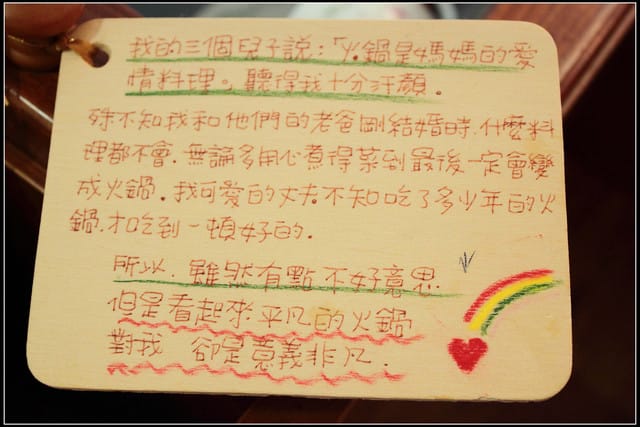 我的三個兒子說：「火鍋是媽媽的愛
情料理。聽得我十分汗顏。
殊不知我和他們的老爸剛結婚時.什麼料
理都不會.無論多用心煮得菜到最後一定會變
成火鍋.我可愛的丈夫.不知吃了多少年的火
鍋.才吃到一頓好的.
所以.雖然有點不好意思
但是看起來平凡的火鍋
對我 卻是意義非凡.